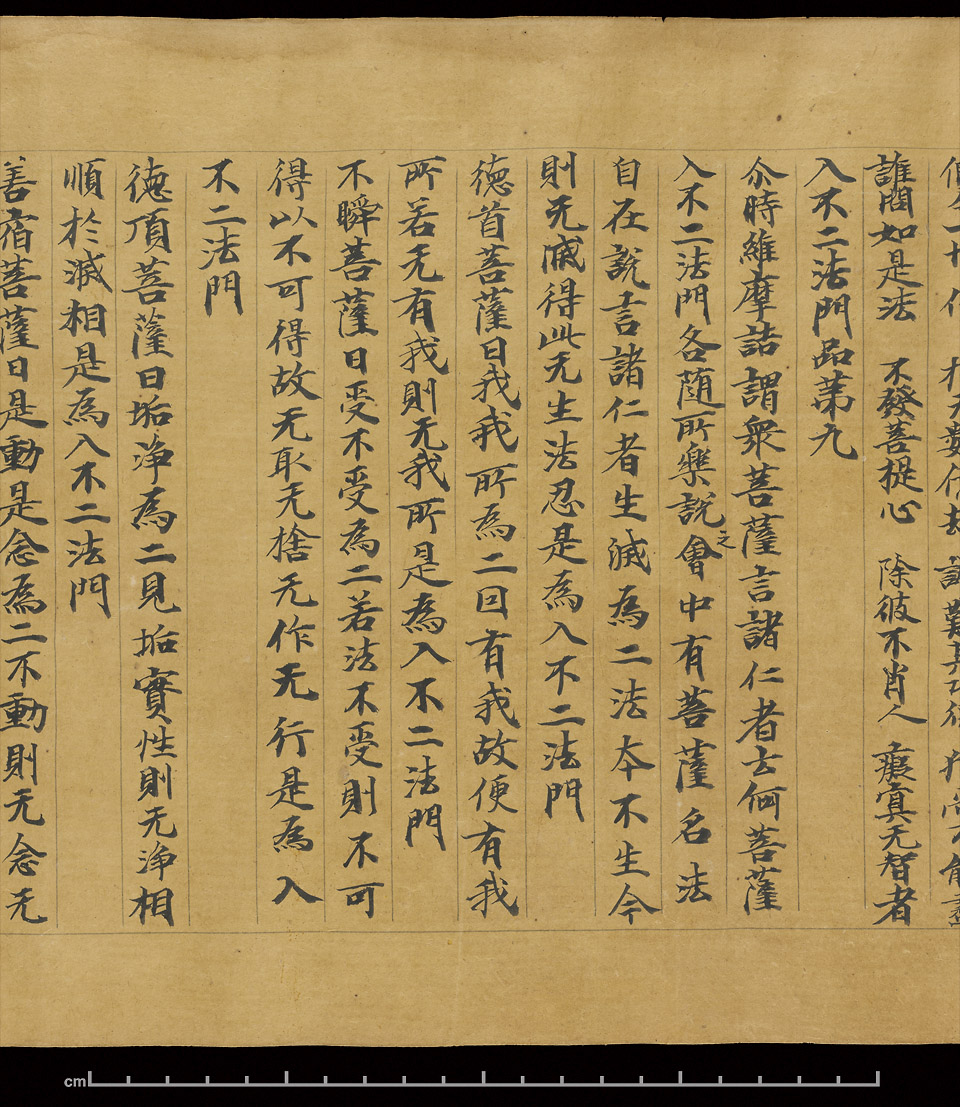 誰聞如是法　不發菩提心　除彼不肖人　癡冥无智者
入不二法門品苐九
尒時維摩詰謂衆菩薩言諸仁者云何菩薩
入不二法門各隨所樂說之會中有菩薩名法
自在說言諸仁者生滅為二法夲不生今
則无滅得此无生法忍是為入不二法門
德首菩薩曰我我所為二囙有我故便有我
所若无有我則无我所是為入不二法門
不瞬菩薩曰受不受為二若法不受則不可
得以不可得故无取无捨无作无行是為入
不二法門
德頂菩薩曰垢淨為二見垢實性則无淨相
順於滅相是為入不二法門
善宿菩薩曰是動是念為二不動則无念无
cm